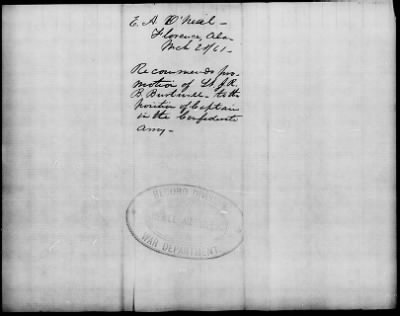 E. A. O'Neal -
Florence, Ala -
Mch 21/61 -
Recommends pro-
motion of Lt J. R.
B. Burtwell - to the
position of Captain
in the Confederate
Army -
RECORD DIVISION
WAR DEPARTMENT.